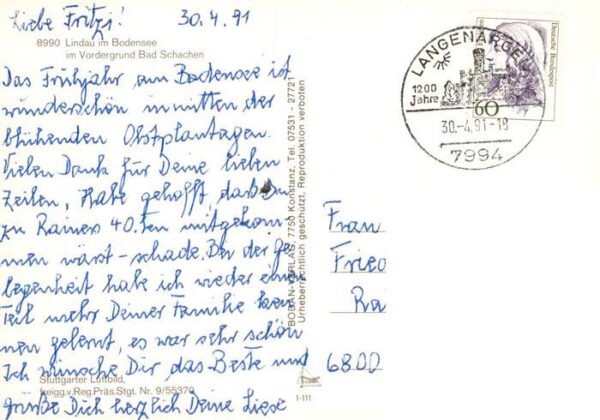 Liebe Fritzi! 30.4.91
8990 Lindau im Bodensee
im Vordergrund Bad Schachen
Das Frühjahr am Bodensee ist
wunderschön inmitten der
blühenden Obstplantagen.
Vielen Dank für Deine lieben
Zeilen, Habe gehofft, daß Du
zu Rainers 40.ten mitgekom
men wärst - schade. Bei der Ge
legenheit habe ich wieder einen
Teil mehr Deiner Familie ken
nen gelernt, es war sehr schön
Ich wünsche Dir das Beste und
grüße Dich herzlich Deine Liese
Stuttgarter Luftbild,
freigg.v.Reg.Präs.Stgt. Nr. 9/55379
BODAN-VERLAG, 7750 Konstanz, Tel. 07531 - 2772
Urheberrechtlich geschützt, Reproduktion verboten
I-111
LANGENARGEN
1200
Jahre
30.-4.91-18
7994
Deutsche Bundespost
60
Frau
Fried
Ra
6800